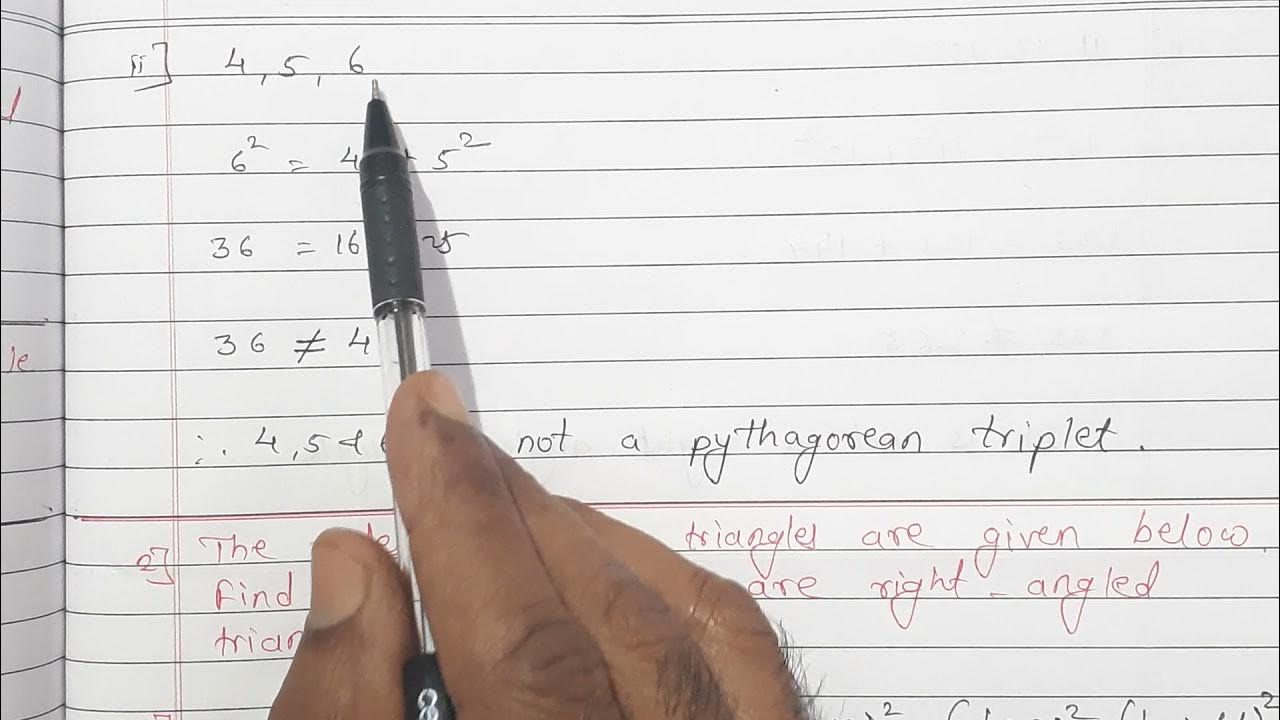 ii] 4, 5, 6
6² = 4 5²
36 = 16 25
36 ≠ 4
∴ 4, 5 & not a pythagorean triplet.
2] The triangles are given below.
Find are right-angled